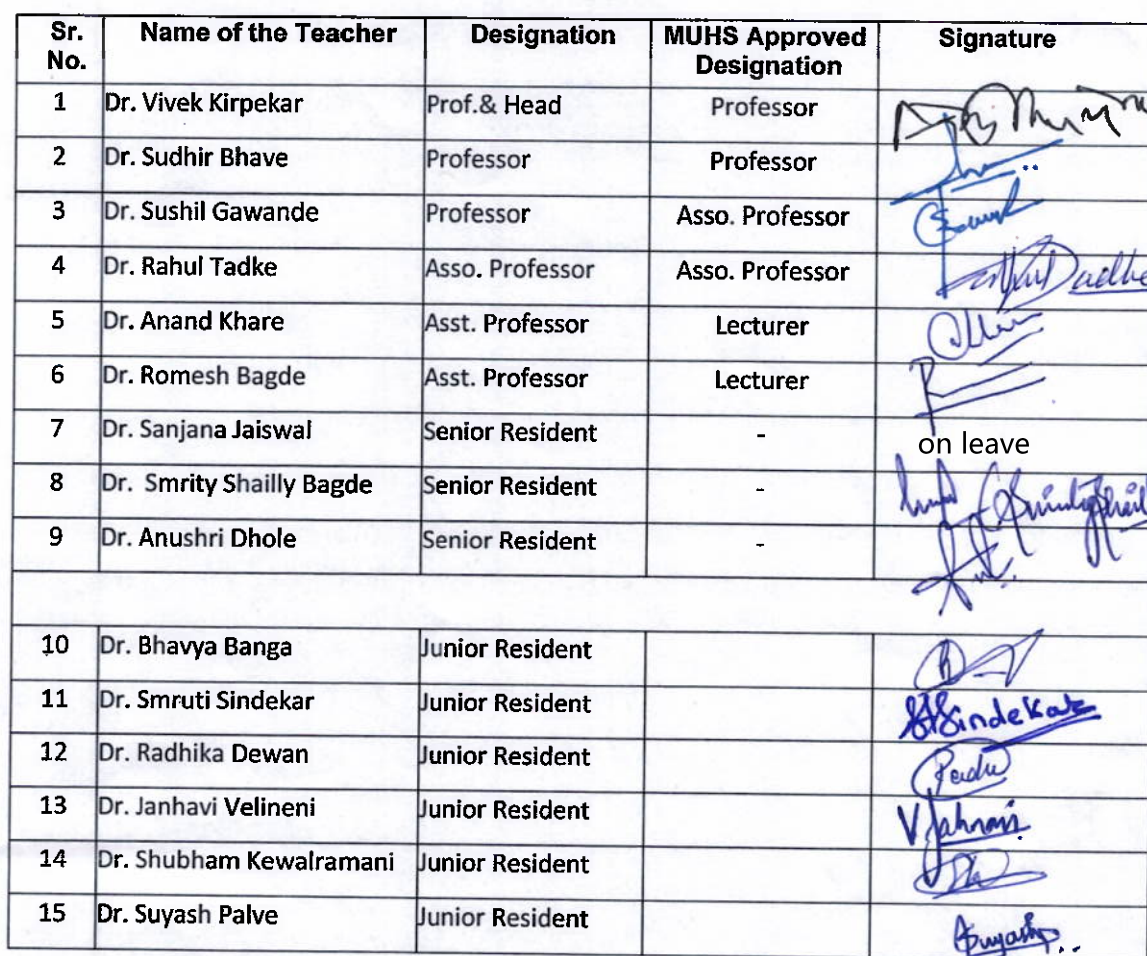 Sr. No. Name of the Teacher Designation MUHS Approved Designation Signature
1 Dr. Vivek Kirpekar Prof.& Head Professor
2 Dr. Sudhir Bhave Professor Professor
3 Dr. Sushil Gawande Professor Asso. Professor
4 Dr. Rahul Tadke Asso. Professor Asso. Professor
5 Dr. Anand Khare Asst. Professor Lecturer
6 Dr. Romesh Bagde Asst. Professor Lecturer
7 Dr. Sanjana Jaiswal Senior Resident - on leave
8 Dr. Smrity Shailly Bagde Senior Resident -
9 Dr. Anushri Dhole Senior Resident -
10 Dr. Bhavya Banga Junior Resident
11 Dr. Smruti Sindekar Junior Resident SSindekar
12 Dr. Radhika Dewan Junior Resident
13 Dr. Janhavi Velineni Junior Resident
14 Dr. Shubham Kewalramani Junior Resident
15 Dr. Suyash Palve Junior Resident